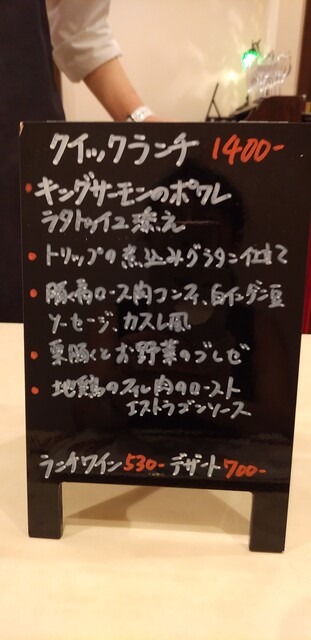 クイックランチ 1400-
・キングサーモンのポワレ
ラタトゥイユ添え
・トリップの煮込みグラタン仕立て
・豚肩ロース肉コンフィ、白インゲン豆
ソーセージ、カスレ風
・栗豚くとお野菜のブレゼ
・地鶏のフィレ肉のロースト
エストラゴンソース
ランチワイン 530- デザート 700-